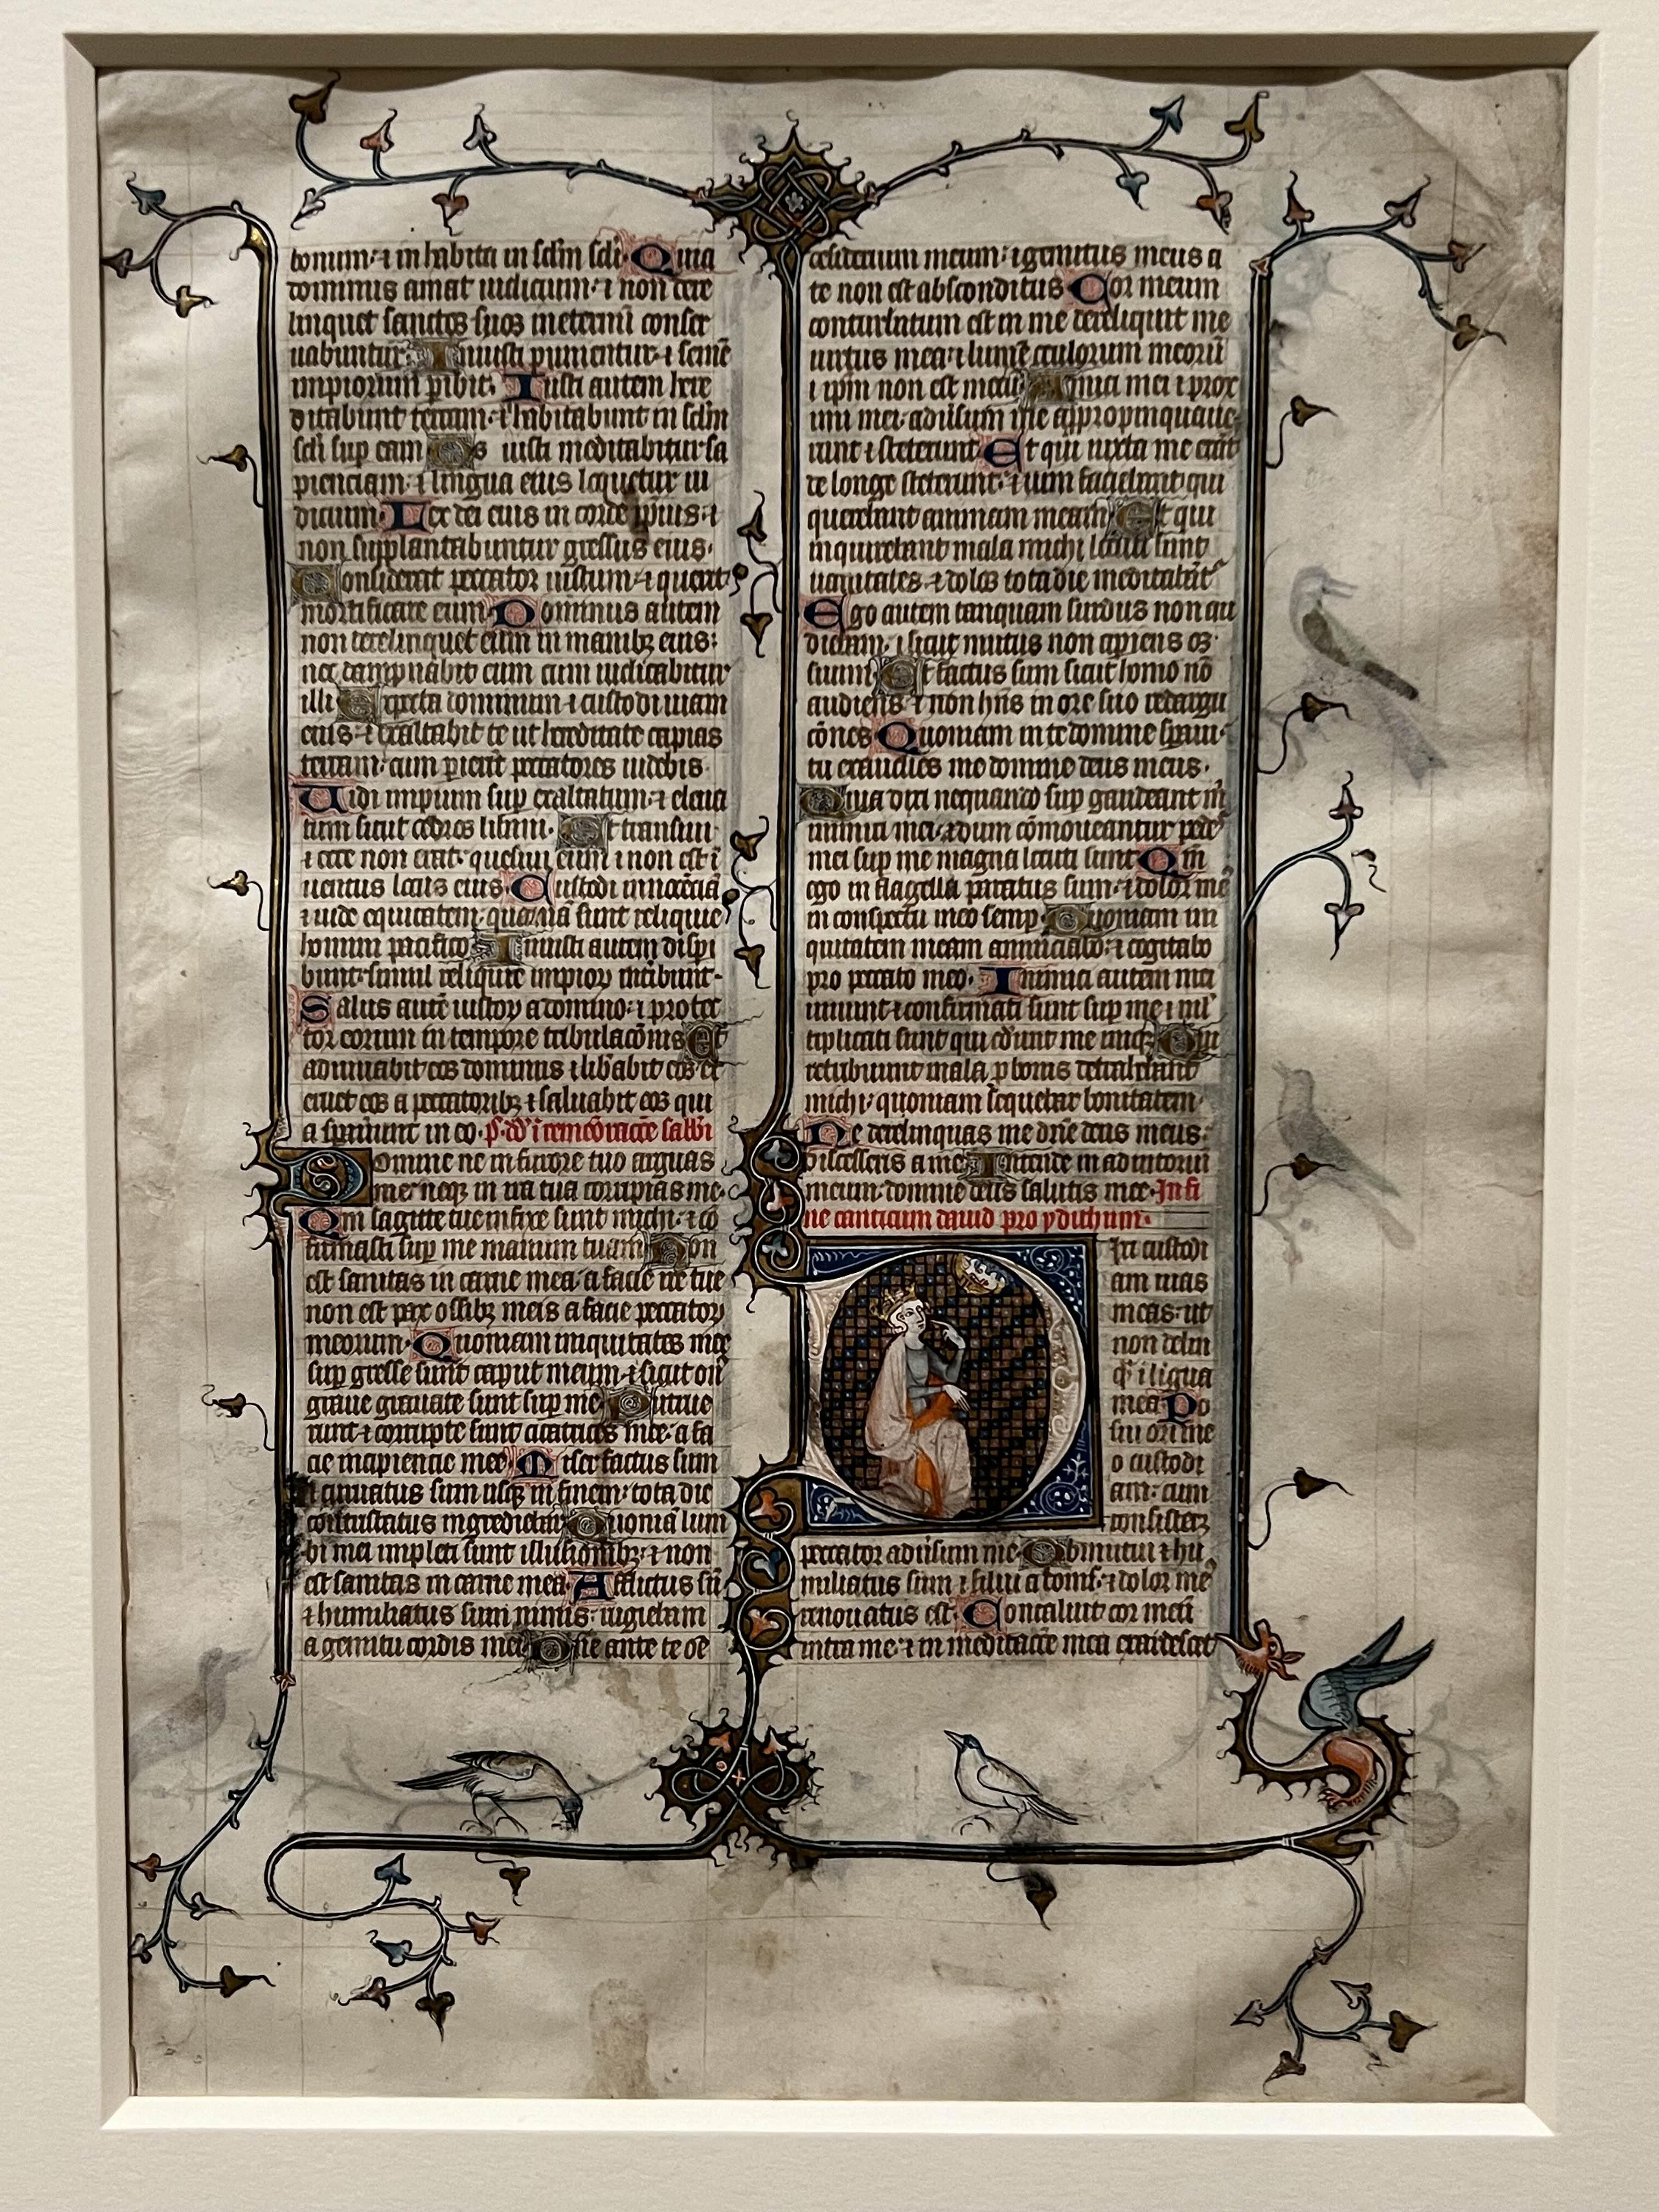 bonum: ⁊ inhabita in sclm scli. Quia
dominus amat iudicium: ⁊ non dere
linquet sanctos suos inet̾nū conser
uabuntur. Iniusti punientur: ⁊ semē
impiorum p̱ibit. Iusti autem here
ditabunt terram: ⁊ habitabunt in sclm
scli sup eam Os iusti meditabitur sa
pienciam: ⁊ lingua eius loquetur iu
dicium. Lex dei eius in corde ip̄ius: ⁊
non supplantabuntur gressus eius.
Considerat peccator iustum: ⁊ querit
mortificare eum Dominus autem
non derelinquet eum in manibꝫ eius:
nec dampnabit eum cum iudicabitur
illi Expecta dominum ⁊ custodi uiam
eius: ⁊ exaltabit te ut hereditate capias
terram: cum p̱ierīt peccatores uidebis.
Uidi impium sup exaltatum: ⁊ eleua
tum sicut cedros libani. Et transiui
⁊ ecce non erat: quesiui eum ⁊ non est ī
uentus locus eius. Custodi innocēciā
⁊ uide equitatem: quoniā sunt reliquie
homini pacifico Iniusti autem dispi
bunt: simul reliquie impioꝝ intibunt.
Salus autē iustoꝝ a domino: ⁊ protec
tor eorum in tempore tribulacōnis Et
adiuuabit eos dominus ⁊ lib̾abit eos: et
eruet eos a peccatoribꝫ ⁊ saluabit eos qui
a sp̱auunt in eo. p̄. dd̾ ī rememoracōe sabbi
Domine ne in furore tuo arguas
me: neqꝫ in ira tua corripias me.
Qm̄ sagitte tue infixe sunt michi: ⁊ cō
firmasti sup me manum tuam Non
est sanitas in carne mea a facie ire tue
non est pax ossibꝫ meis a facie peccatoꝝ
meorum. Quoniam iniquitates mee
sup gresse sunt caput meum: ⁊ sicut on̾
graue grauate sunt sup me Putrue
runt ⁊ corrupte sunt cicatrices mee: a fa
cie insipiencie mee Miser factus sum
⁊ curuatus sum usqꝫ in finem: tota die
contristatus ingrediebar Quoniā lum
bi mei impleti sunt illusionibꝫ: ⁊ non
est sanitas in carne mea. Afflictus sū
⁊ humiliatus sum nimis: rugiebam
a gemitu cordis mei Dn̄e ante te oē
desiderium meum: ⁊ gemitus meus a
te non est absconditus Cor meum
conturbatum est in me dereliquit me
uirtus mea: ⁊ lumē oculorum meorū
⁊ ip̄m non est mecū Amici mei ⁊ prox
imi mei: adu̾sum me appropinquaue
runt ⁊ steterunt Et qui iuxta me erāt
de longe steterunt: ⁊ uim faciebant qui
querebant animam meam Et qui
inquirebant mala michi locuti sunt
uanitates: ⁊ dolos tota die meditabāt̾
Ego autem tanquam surdus non au
diebam: ⁊ sicut mutus non apiens os
suum Et factus sum sicut homo nō
audiens: ⁊ non hn̄s in ore suo redargu
cōnes Quoniam in te domine sp̱aui:
tu exaudies me domine deus meus.
Quia dixi nequando sup gaudeant m̄
inimici mei: ⁊ dum cōmoueantur pedes
mei sup me magna locuti sunt Qm̄
ego in flagella paratus sum: ⁊ dolor me̾
in conspectu meo semp̱ Quoniam in
iquitatem meam annunciabo: ⁊ cogitabo
pro peccato meo. Inimici autem mei
uiuunt ⁊ confirmati sunt sup me ⁊ ml̾
tiplicati sunt qui od̾unt me iniqꝫ Qui
retribuunt mala p̱ bonis detrahebant
michi: quoniam sequebar bonitatem.
Ne derelinquas me dn̄e deus meus:
discesseris a me Intende in adiutoriū
meum: domine deus salutis mee. In fi
ne canticum dauid pro ydithum.
Dixi custodi
am uias
meas: ut
non delin
q̄ ī ligua
mea Po
sui ori me
o custodi
am: cum
consisteꝫ
peccator adu̾sum me Obmutui ⁊ hu
miliatus sum ⁊ silui a bonis: ⁊ dolor me̾
renouatus est. Concaluit cor meū
intra me: ⁊ in meditacōe mea exardescet